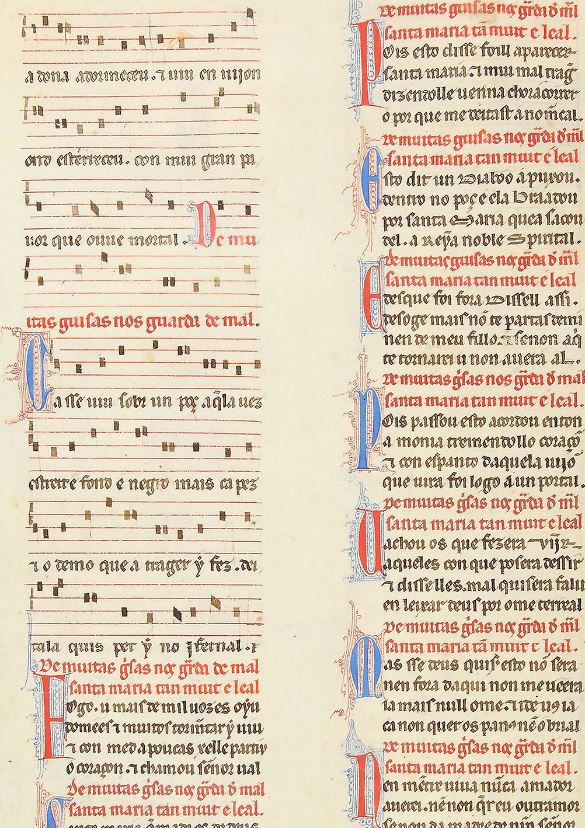 a dona adormeceu. ⁊ viu en vijon
ond esterreceu. con mui gran pa
uor que ouue mortal. De mu
itas guisas nos guarda de mal.
Ca sse viu sobr un poç aq̃la uez
estreit e fond e negro mais ca pez
⁊ o demo que a trager y fez. dei
tala quis per y no jfernal.
De muitas g̃sas noʒ gr̃da de mal
santa maria tan muit e leal
Fogo. u mais de mil uozes oyu
domees ⁊ muitos tormẽtar y uiu
⁊ con med a poucas xelle partiu
o coraçon. ⁊ chamou sennor ual
De muitas g̃sas noʒ gr̃da de mal
santa maria tan muit e leal.
De muitas guisas noʒ gr̃da d m̃l
santa maria tã muit e leal.
Pois esto disse foill aparecer
santa maria. ⁊ mui mal trag̃
dizendolle uenna chora correr
o por que me deitast a nomcal.
De muitas guisas noʒ gr̃da d m̃l
santa maria tan muit e leal
Esto dit un Diaboo a puxou.
dentro no poç e ela braadou
por santa Maria que a sacou
del. a Reyñ a noble Spirital.
De muitas guisas noʒ gr̃da d m̃l
santa maria tan muit e leal.
Desque foi fora disse ll assi.
desoge mais nõ te partas de mi
nen de meu fillo. ⁊ senon aq̃
te tornarei u non auera al.
De muitas g̃sas nos gr̃da d mal
santa maria tan muit e leal.
Pois passou esto acordou en ton
a monia tremendo ll o coraçõ
⁊ con espanto daquela uijõ
que uira foi logo a un portal.
De muitas g̃sas noʒ gr̃da d m̃l
santa maria tan muit e leal
U achou os que fezera vĩjr
aqueles con que posera de ss ir
⁊ disselles. mal quisera falir
en leixar deus por ome terreal
De muitas g̃sas noʒ gr̃da d m̃l
santa maria tã muit e leal.
Mas sse deus quis esto nõ sera
nen fora daqui non me ueera
ia mais null ome. ⁊ ide uꝯ ia
ca non quer os panꝯ nẽ o brial
De muitas g̃sas noʒ gr̃da d m̃l
santa maria tan muit e leal.
Nen mẽtre uiua nũca amador
auerei. nẽ non q̃r eu outr amor
senon da madre de nr̃o sennor